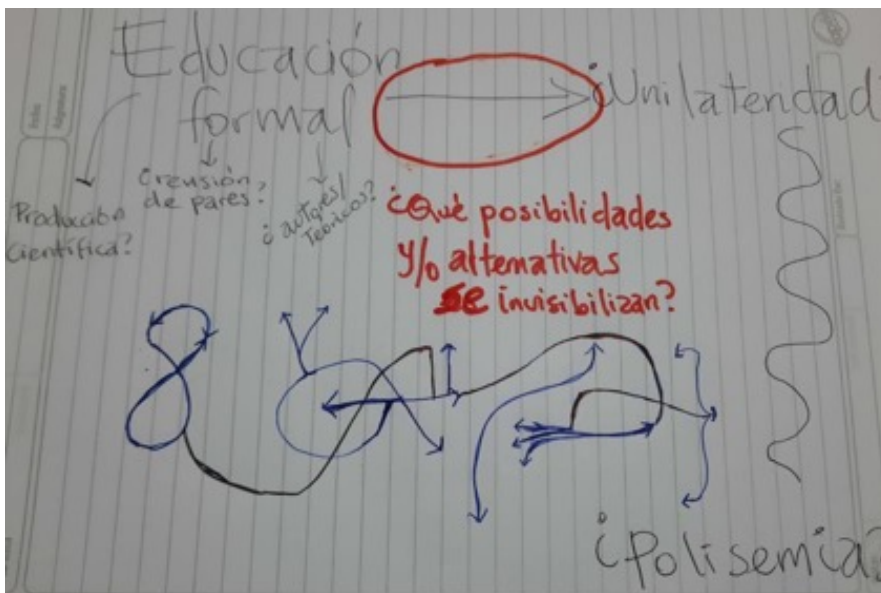 Educación
formal
¿Unilateridad?
Producción
científica?
¿revisión
de pares?
¿autores/
teóricos?
¿Qué posibilidades
y/o alternativas
se invisibilizan?
¿Polisemia?